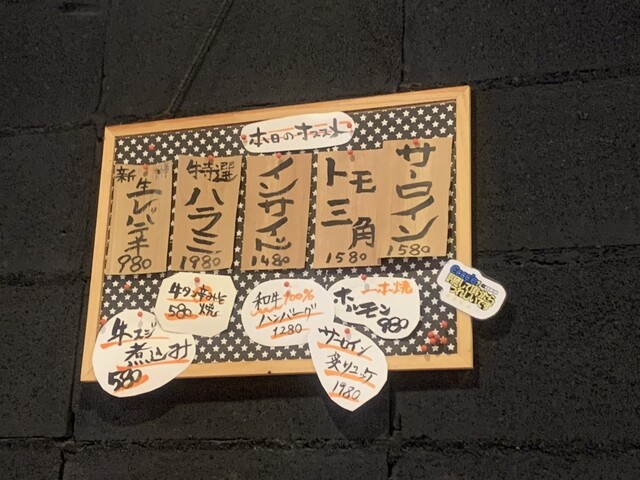 本日のオススメ
サーロイン
1580
トモ三角
1580
インサイド
1480
牛特選
ハラミ
1980
新
生レバテキ
980
牛タン
焼
580
和牛100%
ハンバーグ
1280
一本焼
ホルモン
980
牛スジ
煮込み
580
サーロイン
炙りユッケ
1980
Google